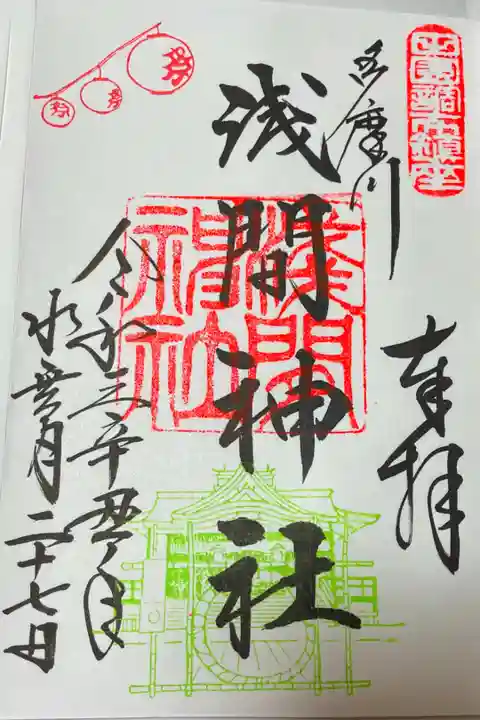 田園調布鎮座
奉拝
多摩川
浅間神社
淺間
神社
令和三辛丑年
水無月二十七日